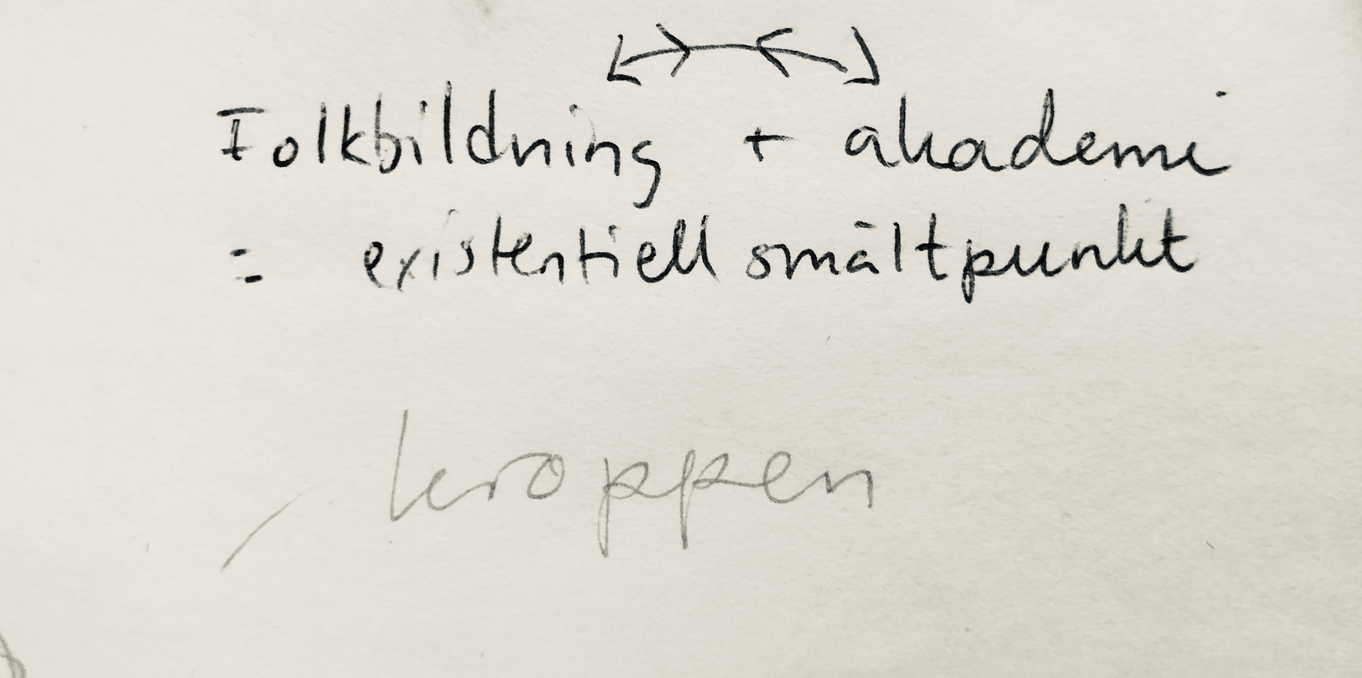 Folkbildning + akademi
= existentiell smältpunkt
kroppen